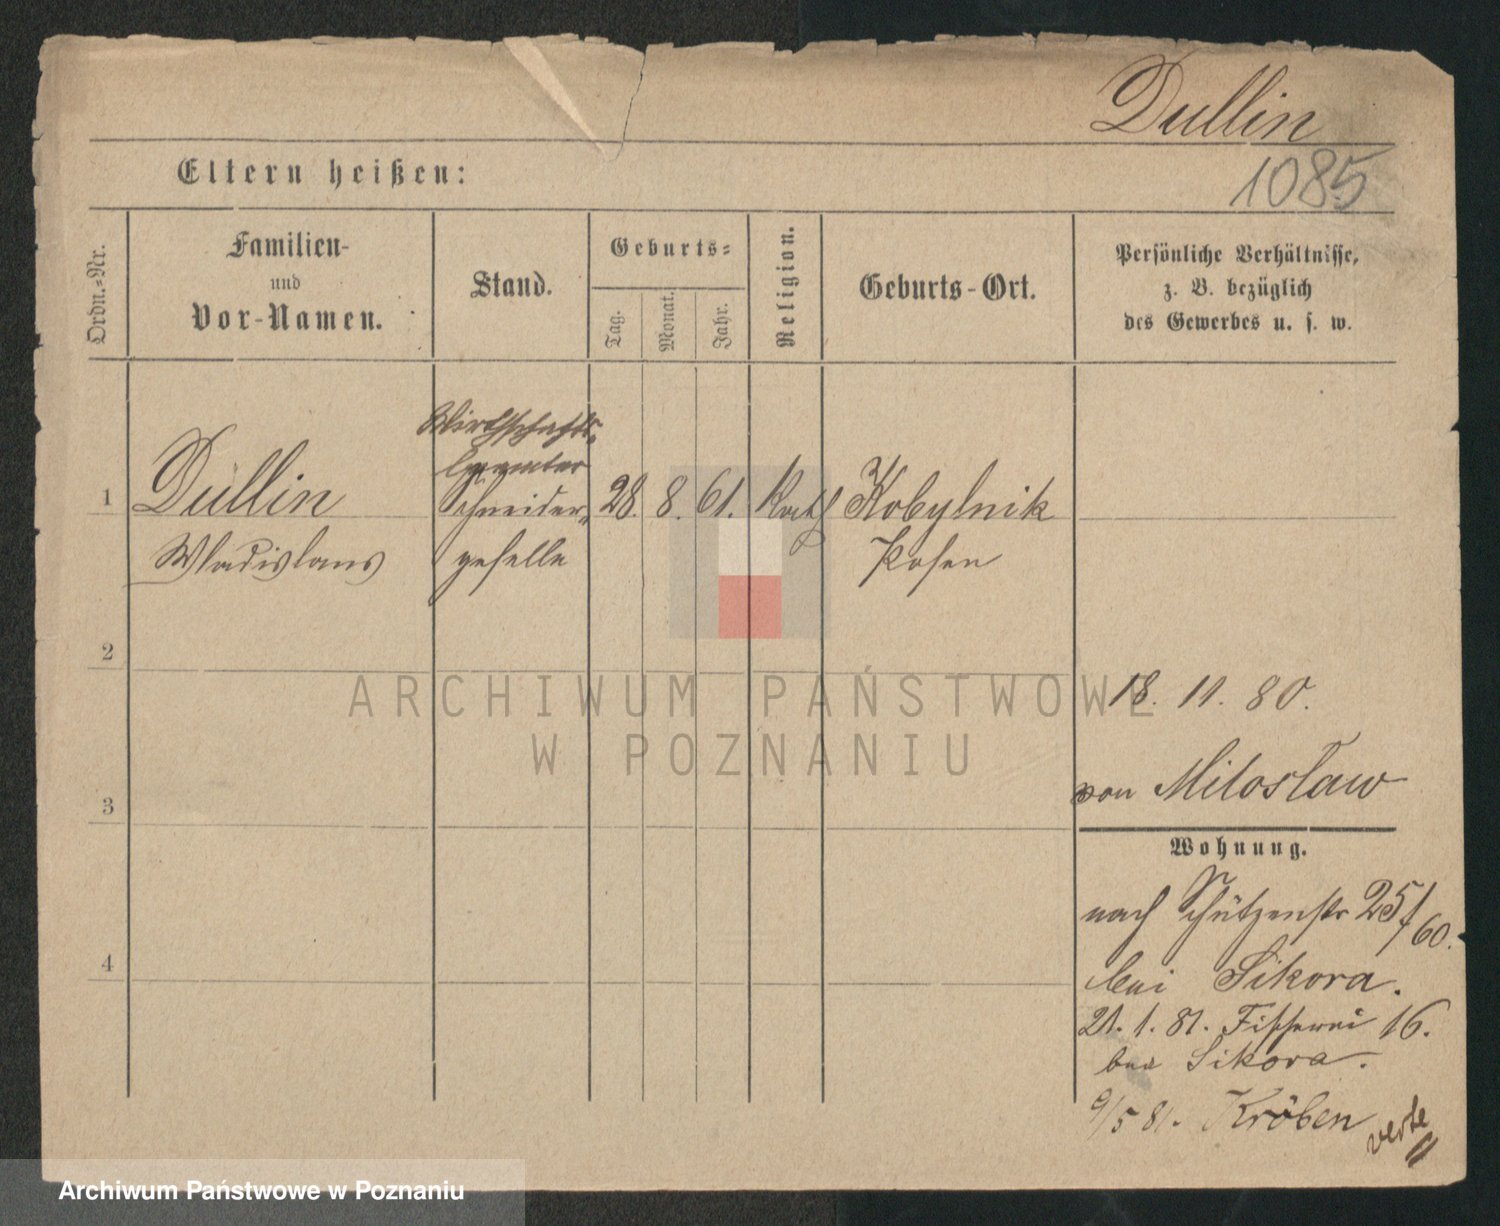 Dullin
1085
Eltern heißen:
Ordn.-Nr.
Familien-
und
Vor-Namen.
Stand.
Geburts-
Tag.
Monat.
Jahr.
Religion.
Geburts-Ort.
Persönliche Verhältnisse,
z. B. bezüglich
des Gewerbes u. s. w.
Wirthschafts-
1 Dullin Schneider- 28. 8. 61. Kath Kobylnik
Wladislaus geselle Posen
2
18. 11. 80.
von Miłosław
3
Wohnung.
nach Schützenstr 25/60.
bei Sikora.
4
21. 1. 81. Fischerei 16.
bei Sikora.
9/5 81. Kröben
verte
ARCHIWUM PAŃSTWOWE
W POZNANIU
Archiwum Państwowe w Poznaniu